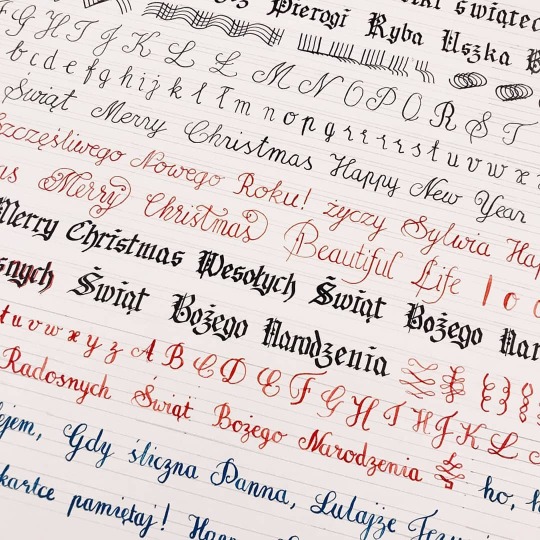 świątec
Pierogi Ryba Uszka B
F G H I J K L Ł M N O P Q R S T
b c d e f g h i j k l ł m n o p q r r r r s t u v w x
Świąt Merry Christmas Happy New Year
Szczęśliwego Nowego Roku! życzy Sylwia Hap
as Merry Christmas Beautiful Life l o
Merry Christmas Wesołych Świąt Bożego Nar
snych Świąt Bożego Narodzenia
t u v w x y z A B C D E F G H I H J K L
Radosnych Świąt Bożego Narodzenia
ejem, Gdy śliczna Panna, Lulajże Jezu ho, h
kartce pamiętaj! Happ